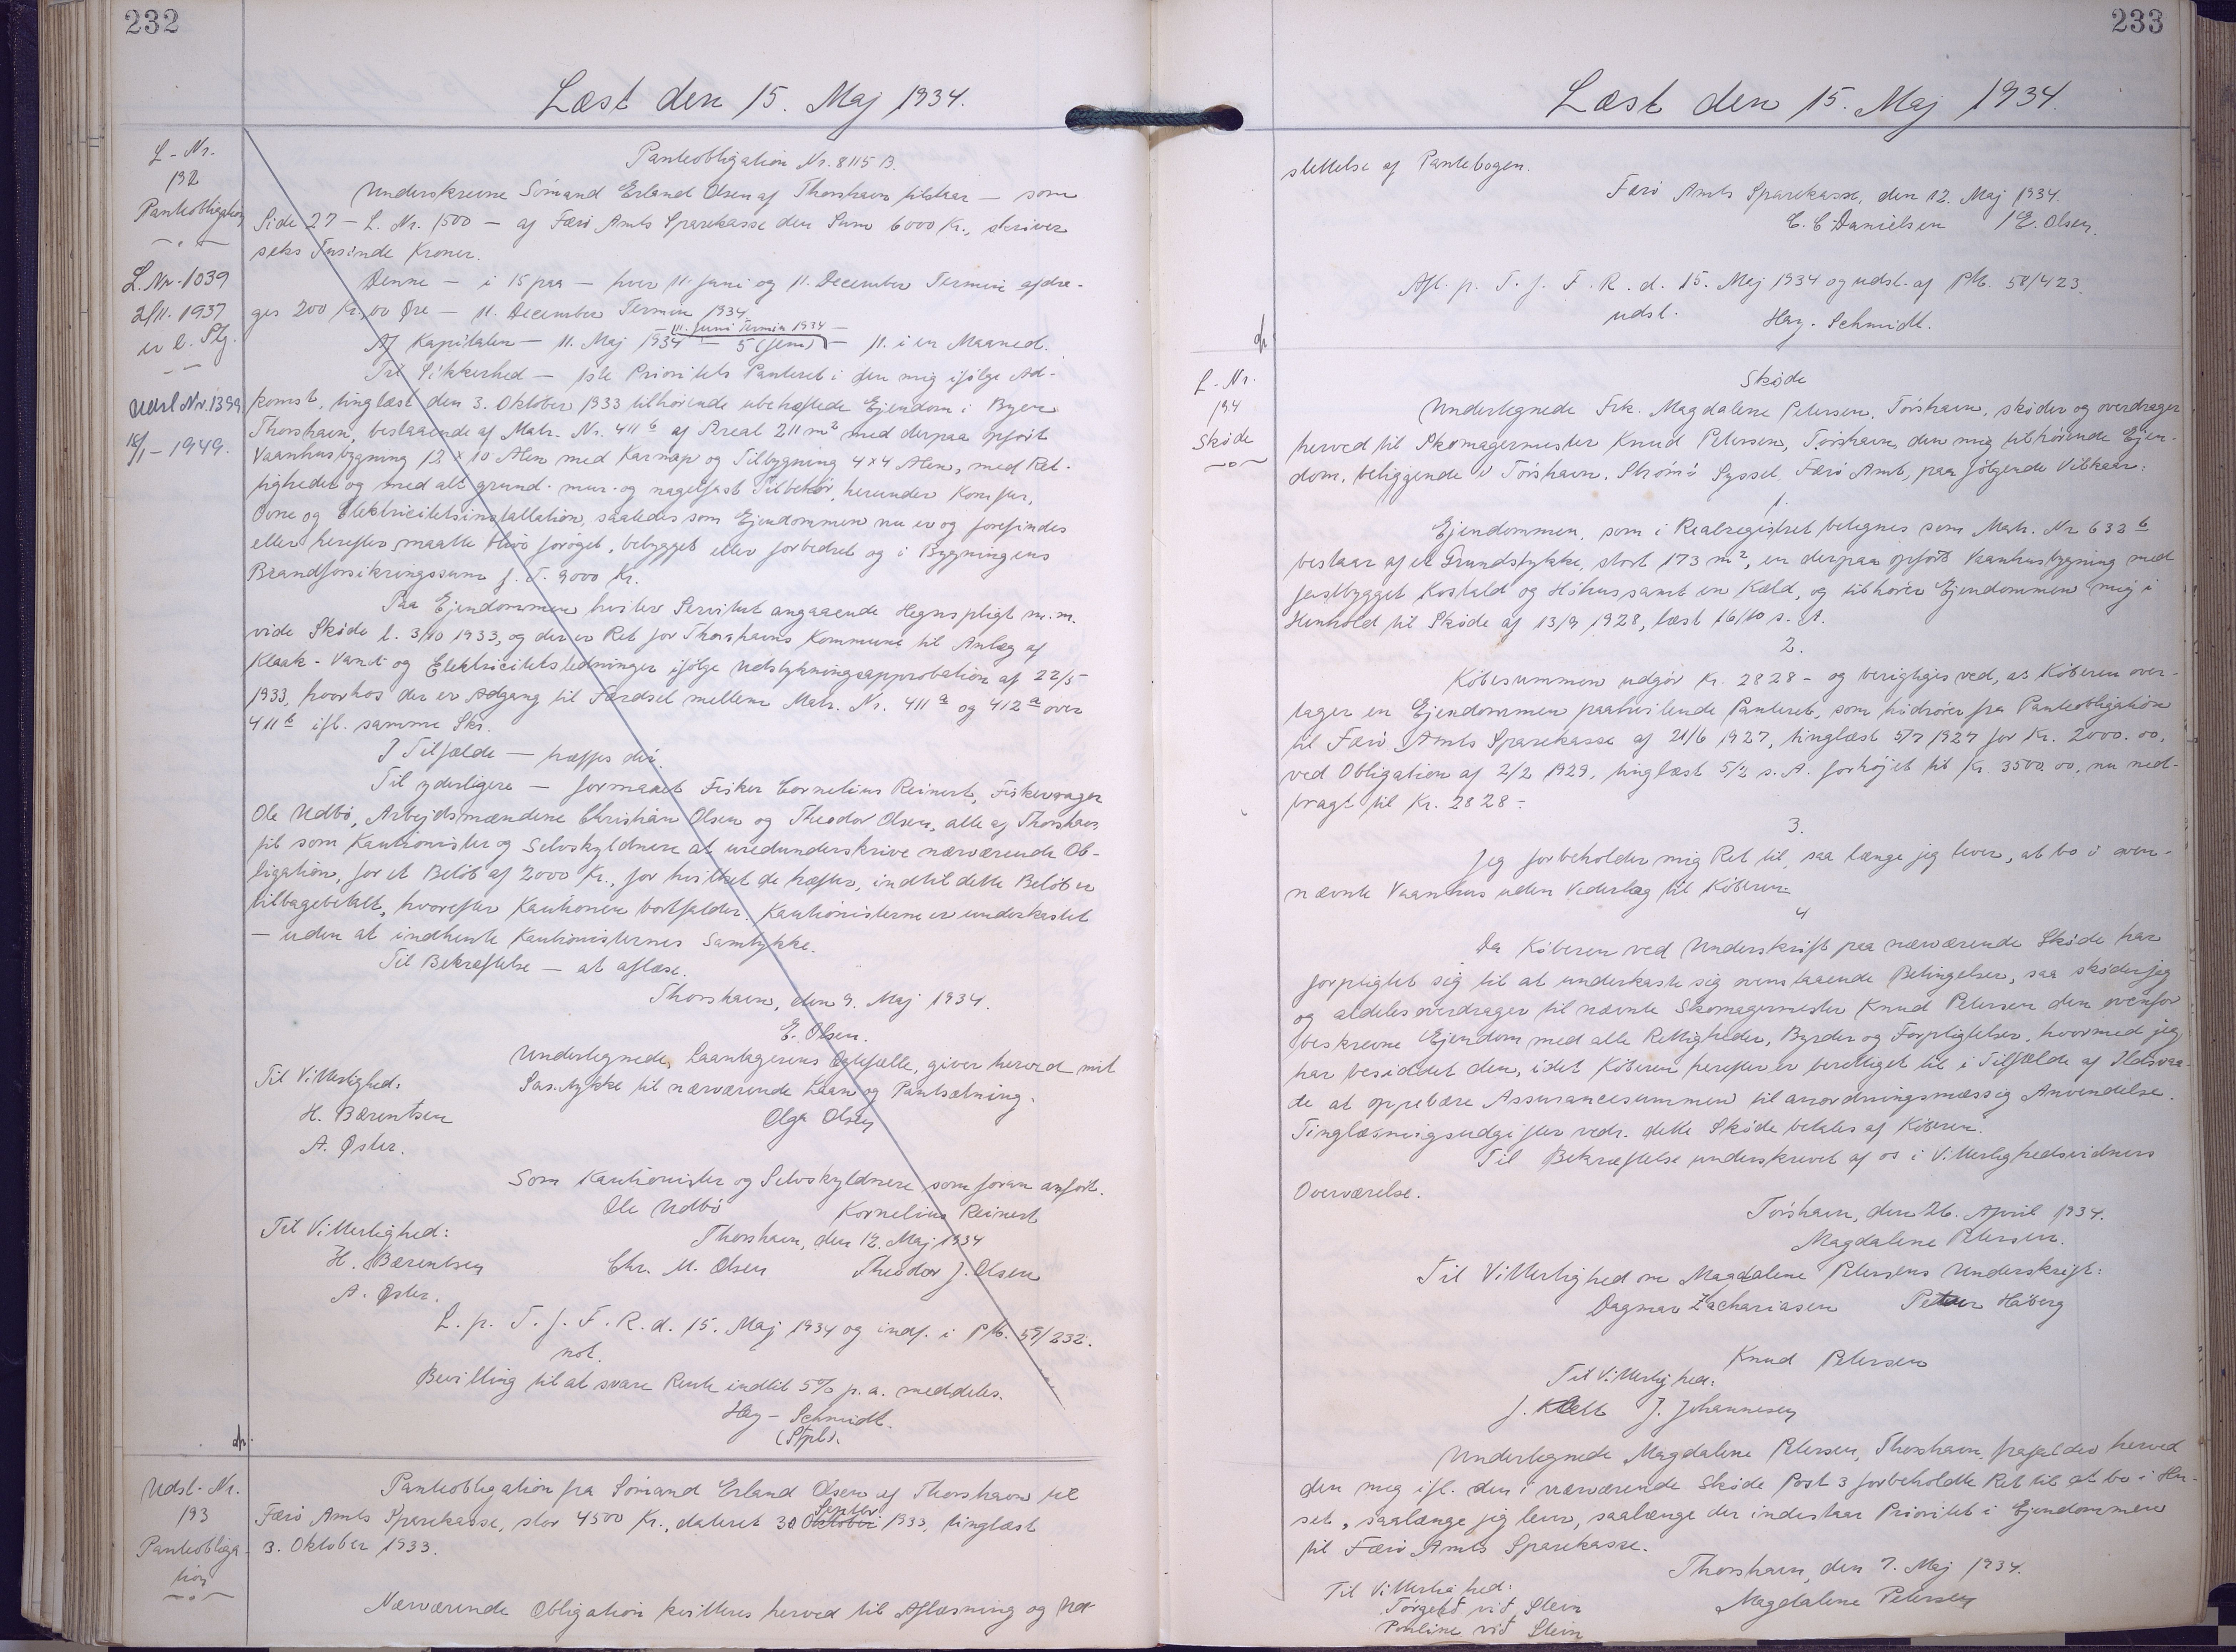 232
Læst den 15. Maj 1934.
L-Nr.
192
Panteobligation
Panteobligation Nr. 8115 B.
Underskrevne Sömand Erland Olsen af Thorshavn tilstaar — som
Side 27 — L. Nr. 1500 — af Færö Amts Sparekasse den Sum 6000 Kr., skriver
seks Tusinde Kroner.
L. Nr. 1039
2/11. 1937
Denne — i 15 paa — hver 11. Juni og 11. December Termin afdra-
ges 200 Kr., 00 Øre — 11. December Termin 1934.
11. Juni Termin 1934 —
Af Kapitalen — 11. Maj 1934 — 5 (fem) — 11. i en Maaned.
Til Sikkerhed — 1ste Prioritets Panteret i den mig ifölge Ad-
Udsl Nr. 1399
18/1 - 1949.
komst, tinglæst den 3. Oktober 1933 tilhörende ubehæftede Ejendom i Byen
Thorshavn, bestaaende af Matr. Nr. 411 b af Areal 211 m² med derpaa opfört
Vaanhusbygning 12 x 10 Alen med Karnap og Tilbygning 4 x 4 Alen, med Ret-
tigheder og med alt grund- mur- og nagelfast Tilbehör, herunder Komfur,
Ovne og Elektricitetsinstallation, saaledes som Ejendommen nu er og forefindes
eller herefter maatte blive foröget, bebygget eller forbedret og i Bygningens
Brandforsikringssum f. T. 9000 Kr.
Paa Ejendommen hviler Servitut angaaende Hegnspligt m.m.
vide Skøde l. 3/10 1933, og der er Ret for Thorshavns Kommune til Anlæg af
Kloak- Vand- og Elektricitetsledninger ifölge Udstykningsapprobation af 22/5
1933, hvorhos der er Adgang til Færdsel mellem Matr. Nr. 411 a og 412 a over
411 b ifl. samme Skr.
I Tilfælde — træffes dér.
Til yderligere — formaaet Fisker Cornelius Reinert, Fiskevrager
Ole Udbö, Arbejdsmændene Christian Olsen og Theodor Olsen, alle af Thorshavn
til som Kautionister og Selvskyldnere at medunderskrive nærværende Ob-
ligation, for et Belöb af 2000 Kr., for hvilket de hæfter, indtil dette Belöb er
tilbagebetalt, hvorefter Kautionen bortfalder. Kautionisterne er underkastet
— uden at indhente Kautionisternes Samtykke.
Til Bekræftelse — at aflæse.
Thorshavn, den 9. Maj 1934.
E. Olsen.
Undertegnede, Laantagerens Ægtefælle, giver herved mit
Til Vitterlighed:
Samtykke til nærværende Laan og Pantsætning.
H. Bærentsen
Olga Olsen
A. Øster.
Som Kautionister og Selvskyldnere som foran anfört.
Ole Udbö Kornelius Reinert
Til Vitterlighed:
Thorshavn, den 12. Maj 1934
H. Bærentsen
Chr. M. Olsen Theodor J. Olsen
A. Øster.
L. p. T. f. F. R. d. 15. Maj 1934 og indf. i Ptb. 59/232.
not.
Bevilling til at svare Rente indtil 5% p. a. meddeles.
Hay-Schmidt.
(Stpl).
Udsl-Nr.
193
Panteobliga-
tion
Panteobligation fra Sömand Erland Olsen af Thorshavn til
Færö Amts Sparekasse, stor 4500 Kr., dateret 30 Oktober Septbr. 1933, tinglæst
3. Oktober 1933.
Nærværende Obligation kvitteres herved til Aflæsning og Ud-
233
Læst den 15. Maj 1934.
slettelse af Pantebogen.
Færö Amts Sparekasse, den 12. Maj 1934.
C. C Danielsen / E. Olsen.
Afl. p. T. f. F. R. d. 15. Maj 1934 og udsl. af Ptb. 58/423.
udsl.
Hay-Schmidt.
L-Nr.
194
Skøde
Skøde
Undertegnede Frk. Magdalene Petersen, Tórshavn, skøder og overdrager
herved til Skomagermester Knud Petersen, Tórshavn, den mig tilhörende Ejen-
dom, beliggende i Tórshavn, Strömö Syssel, Færö Amt, paa fölgende Vilkaar:
1.
Ejendommen, som i Realregistret betegnes som Matr. Nr 632 b
bestaar af et Grundstykke, stort 173 m², en derpaa opfört Vaanhusbygning med
fastbygget Kostald og Höhus samt en Kæld, og tilhörer Ejendommen mig i
Henhold til Skøde af 13/9 1928, læst 16/10 s. A.
2.
Købesummen udgör Kr. 2828 - og berigtiges ved, at Köberen over-
tager en Ejendommen paahvilende Panteret, som hidrörer fra Panteobligation
til Færö Amts Sparekasse af 21/6 1927, tinglæst 5/7 1927 for Kr. 2000.00,
ved Obligation af 2/2 1929, tinglæst 5/2 s. A. forhöjet til Kr. 3500.00, nu ned-
bragt til Kr. 2828 -.
3.
Jeg forbeholder mig Ret til, saa længe jeg lever, at bo i oven-
nævnte Vaanhus uden Vederlag til Köberen.
4
Da Köberen ved Underskrift paa nærværende Skøde har
forpligtet sig til at underkaste sig ovenstaaende Betingelser, saa skøder jeg
og aldeles overdrager til nævnte Skomagermester Knud Petersen den ovenfor
beskrevne Ejendom med alle Rettigheder, Byrder og Forpligtelser, hvormed jeg
har besiddet den, idet Köberen herefter er berettiget til i Tilfælde af Ildsvaa-
de at oppebære Assurancesummen til anordningsmæssig Anvendelse.
Tinglæsningsudgifter vedr. dette Skøde betales af Köberen.
Til Bekræftelse underskrevet af os i Vitterlighedsvidners
Overværelse.
Tórshavn, den 26. April 1934.
Magdalene Petersen.
Til Vitterlighed om Magdalene Petersens Underskrift:
Dagmar Zachariasen Petur Håberg
Knud Petersen
Til Vitterlighed:
J. Johannesen
Undertegnede Magdalene Petersen, Thorshavn, frafalder herved
den mig ifl. den i nærværende Skøde Post 3 forbeholdte Ret til at bo i Hu-
set, saalænge jeg lever, saalænge der indestaar Prioritet i Ejendommen
til Færö Amts Sparekasse.
Thorshavn, den 7. Maj 1934.
Til Vitterlighed:
Magdalene Petersen
við Stein
Pouline við Stein